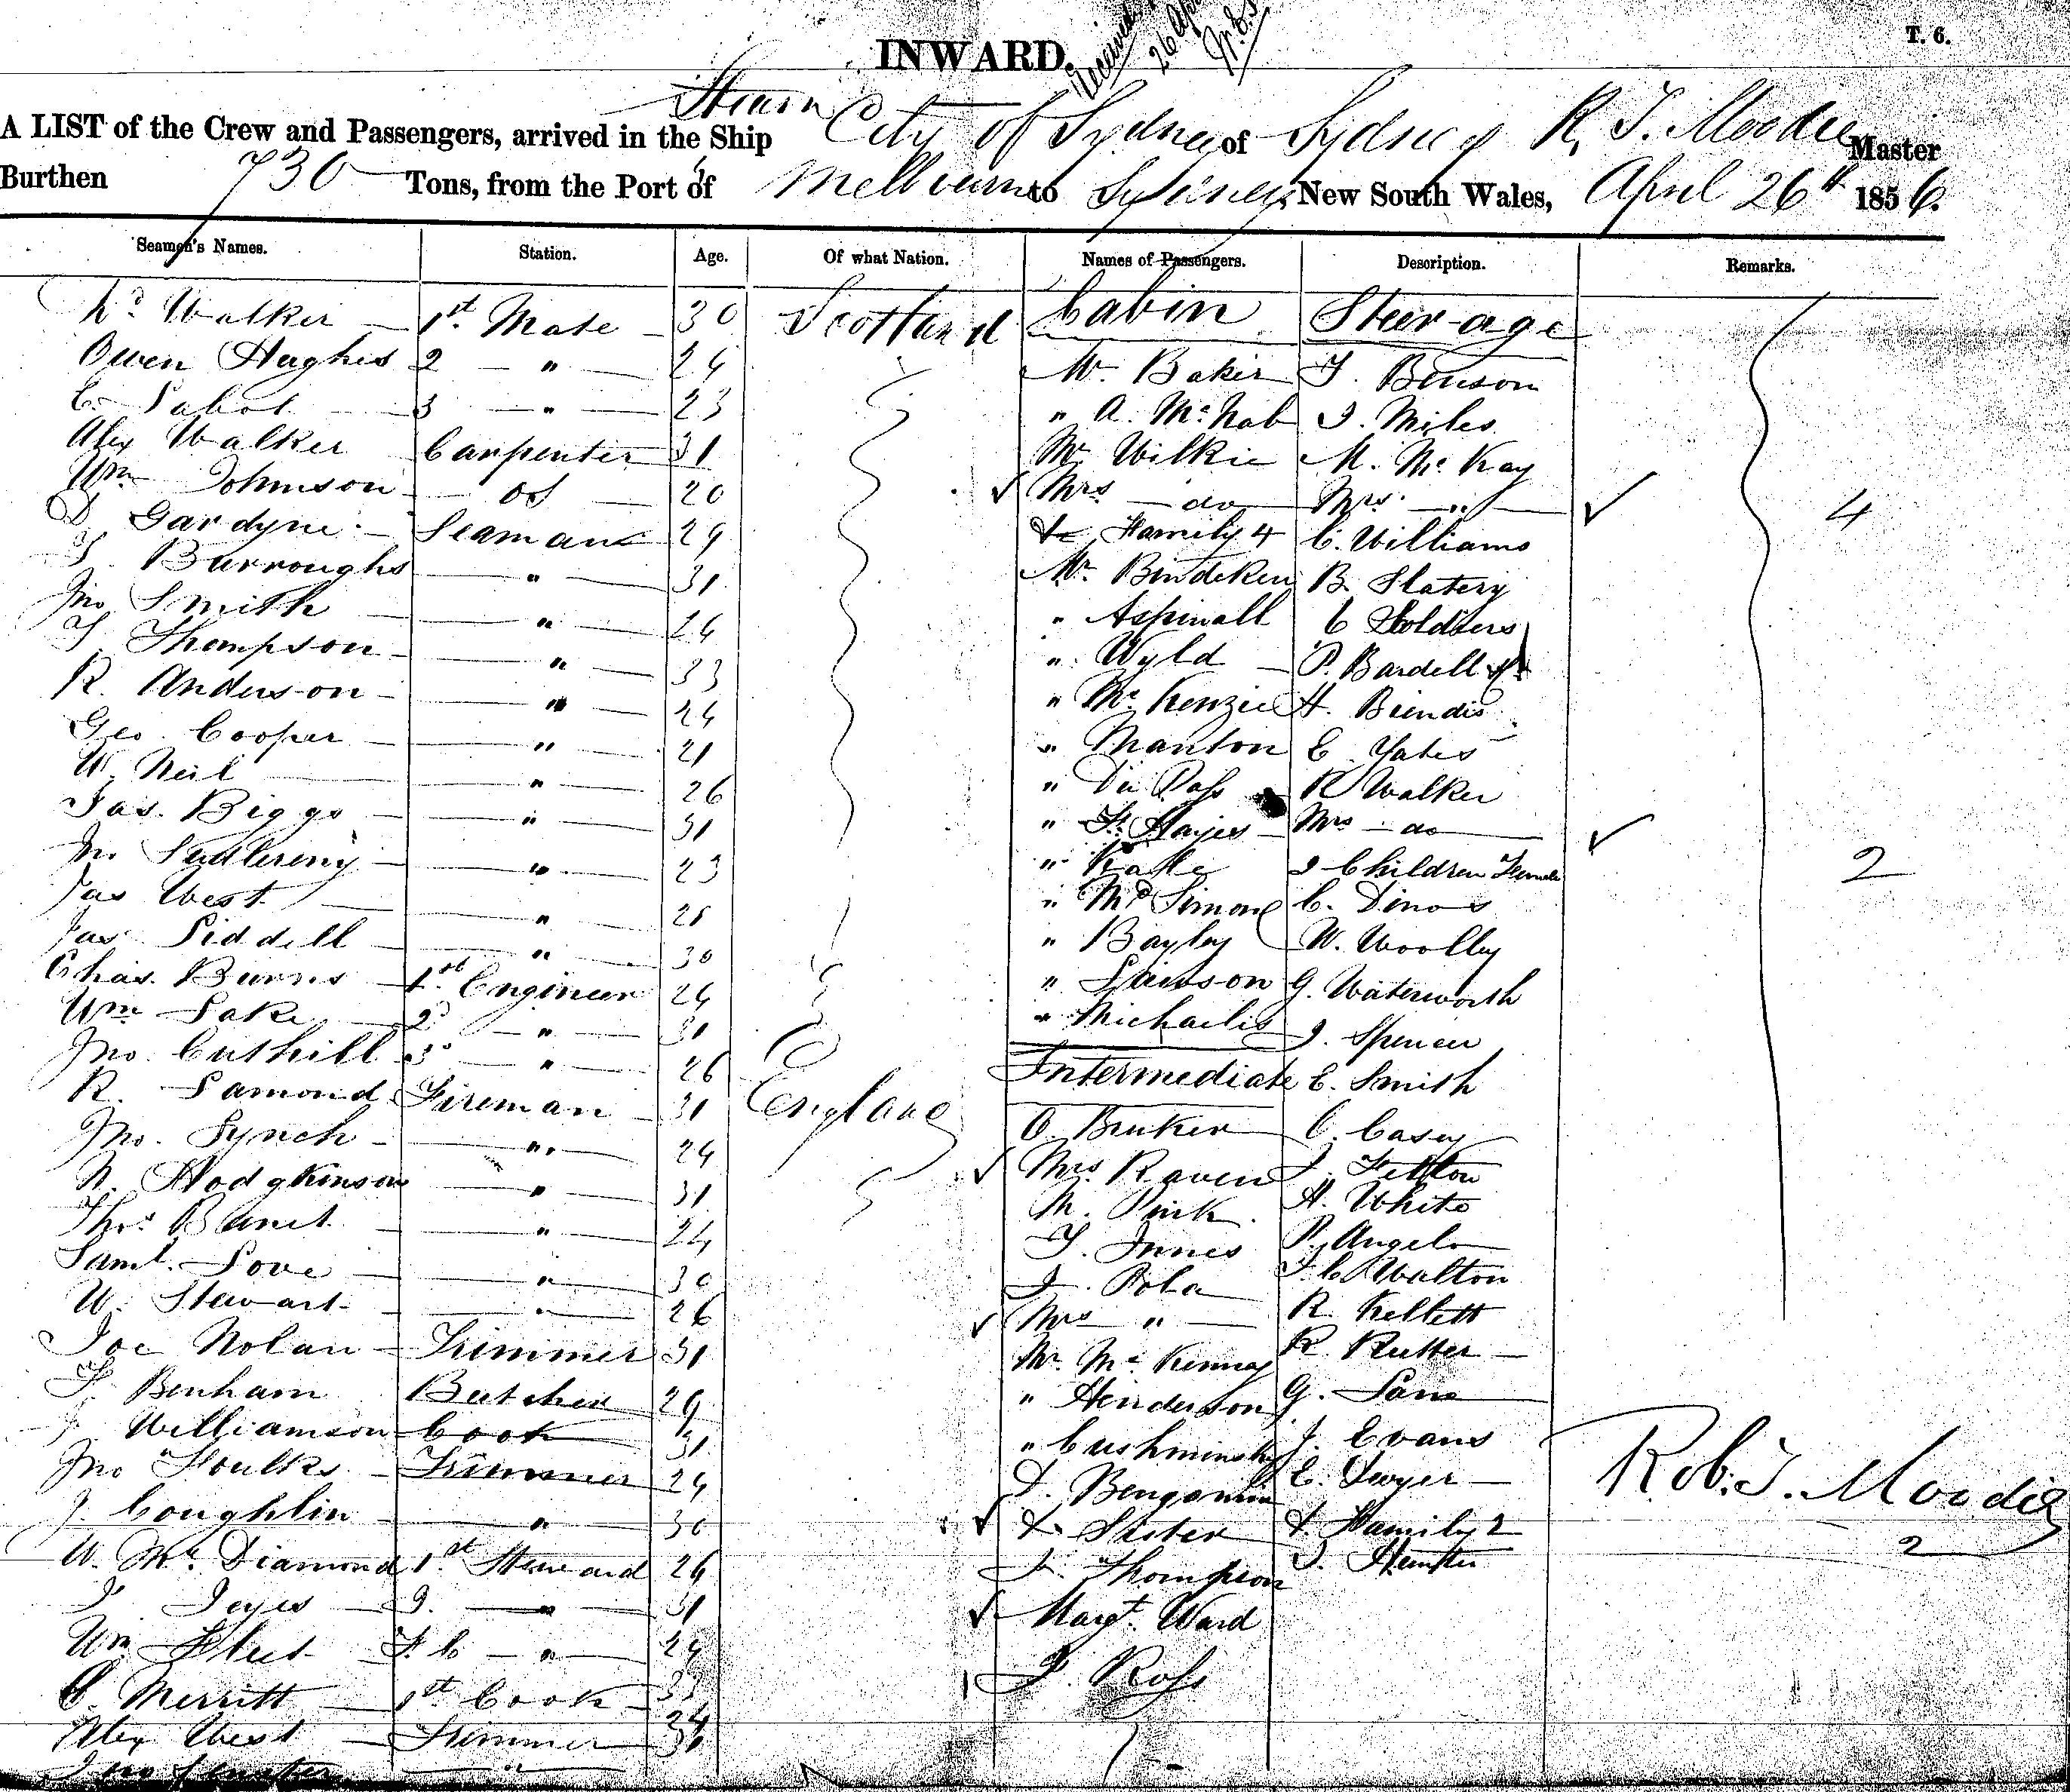 T. 6.
INWARD.
Received
26 Apr
Steam
A LIST of the Crew and Passengers, arrived in the Ship City of Sydney of Sydney R. T. Moodie Master
Burthen 730 Tons, from the Port of Melbourne to Sydney, New South Wales, April 26th 1856.
Seamen's Names. Station. Age. Of what Nation. Names of Passengers. Description. Remarks.
Walker 1st Mate 30 Scotland Cabin Steerage
Owen Hughes 2 " 24 Mr. Baker T. Benson
3 " 23 " A. McNab J. Miles
Alex Walker Carpenter 31 Mr. Wilkie M. McKay
Wm Johnson 20 Mrs do Mrs " 4
D Gardyne Seaman 29 & Family 4 C. Williams
Burroughs " 31 Mr. B. Slatery
Jno Smith " 24 " Aspinall 6 Soldiers
T Thompson " 33 " Wyld P. Bardell
R. Anderson " 24 " McKenzie H.
Geo. Cooper " 21 " Manton E. Yates
W. Neil " 26 " R Walker
Jas. Biggs " 31 " Hayes Mrs do
Jno " 23 " 2 Children Female 2
Jas West " 21 " Simon C.
Jas Liddell " 30 " Bayley W. Woolley
Chas. Burns 1st Engineer 24 " G. Waterworth
Wm Lake 2d " 31 " Michaelis J. Spencer
Jno. Cuthill 3d " 26 Intermediate E. Smith
R. Lamond Fireman 31 England O. Bruker C. Casey
Jno. Lynch " 24 Mrs Raven
N. Hodgkinson " 31 M. Pink H. White
Thos " 24 T. Innes P. Angelo
Saml. Love " 30 J. Pola Walton
W. Stewart " 26 Mrs " R Kellett
Joe Nolan Trimmer 31 Mr. McKenney R Rutter
Benham Butcher 29 " Henderson G. Lane
Williamson Cook 31 " J. Evans
Jno Foulks Trimmer 24 Benjamin E. Dwyer Rob. T. Moodie
J. Coughlin " 30 & Sister & Family 2 2
W. McDiamond 1st Steward 26 Thompson
2. " 31 Margt. Ward
Wm F C " 24 J. Ross
C. Merritt 1st Cook 33
Alex West Trimmer
Jno